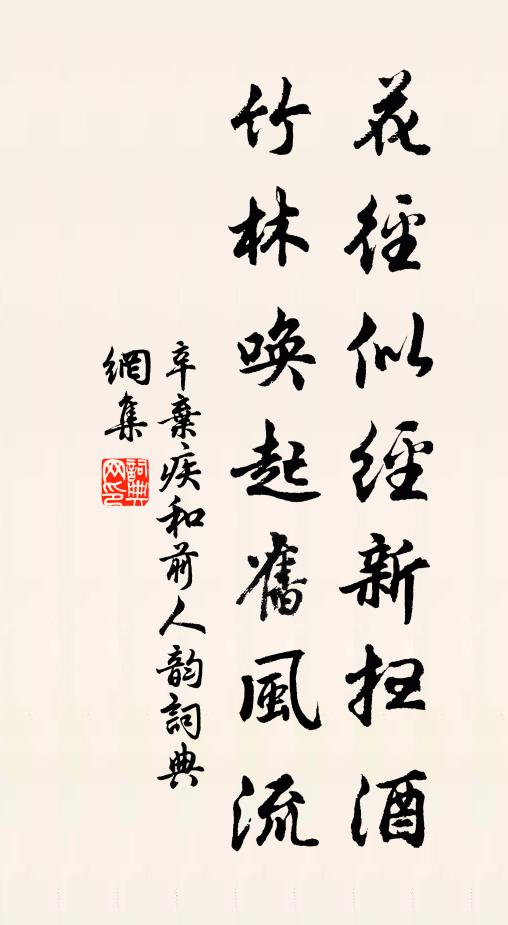 花徑似經新掃酒
竹林喚起舊風流
辛棄疾和前人韵詞典
網集
詞典
网印